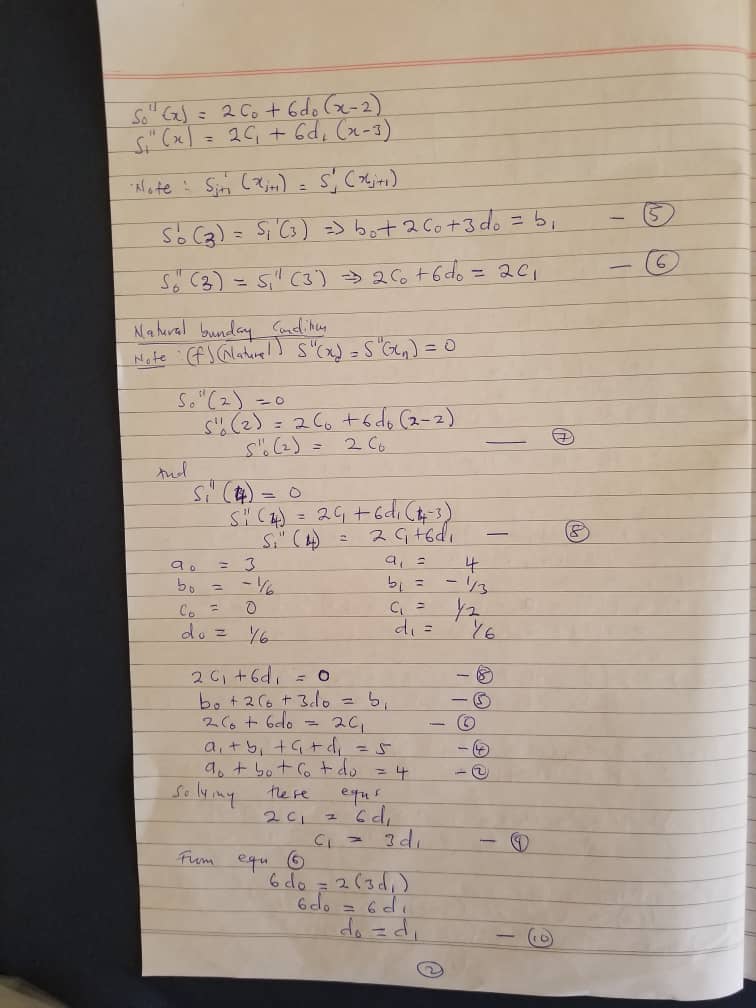 S₀"(x) = 2C₀ + 6d₀(x-2)
S₁"(x) = 2C₁ + 6d₁(x-3)
Note : S'ⱼ₊₁(xⱼ₊₁) = S'ⱼ(xⱼ₊₁)
S₀'(3) = S₁'(3) => b₀ + 2C₀ + 3d₀ = b₁ — ⑤
S₀"(3) = S₁"(3) => 2C₀ + 6d₀ = 2C₁ — ⑥
Natural bunday Condition
Note : (f) (Natural) S"(x₀) = S"(xₙ) = 0
S₀"(2) = 0
S"₀(2) = 2C₀ + 6d₀(2-2)
S"₀(2) = 2C₀ — ⑦
And
S₁"(4) = 0
S₁"(4) = 2C₁ + 6d₁(4-3)
S₁"(4) = 2C₁ + 6d₁ — ⑧
a₀ = 3 a₁ = 4
b₀ = -1/6 b₁ = -1/3
C₀ = 0 C₁ = 1/2
d₀ = 1/6 d₁ = 1/6
2C₁ + 6d₁ = 0 — ⑧
b₀ + 2C₀ + 3d₀ = b₁ — ⑤
2C₀ + 6d₀ = 2C₁ — ⑥
a₁ + b₁ + C₁ + d₁ = 5 — ④
a₀ + b₀ + C₀ + d₀ = 4 — ②
Solving these equs
2C₁ = 6d₁
C₁ = 3d₁ — ⑨
From equ ⑥
6d₀ = 2(3d₁)
6d₀ = 6d₁
d₀ = d₁ — ⑩
②